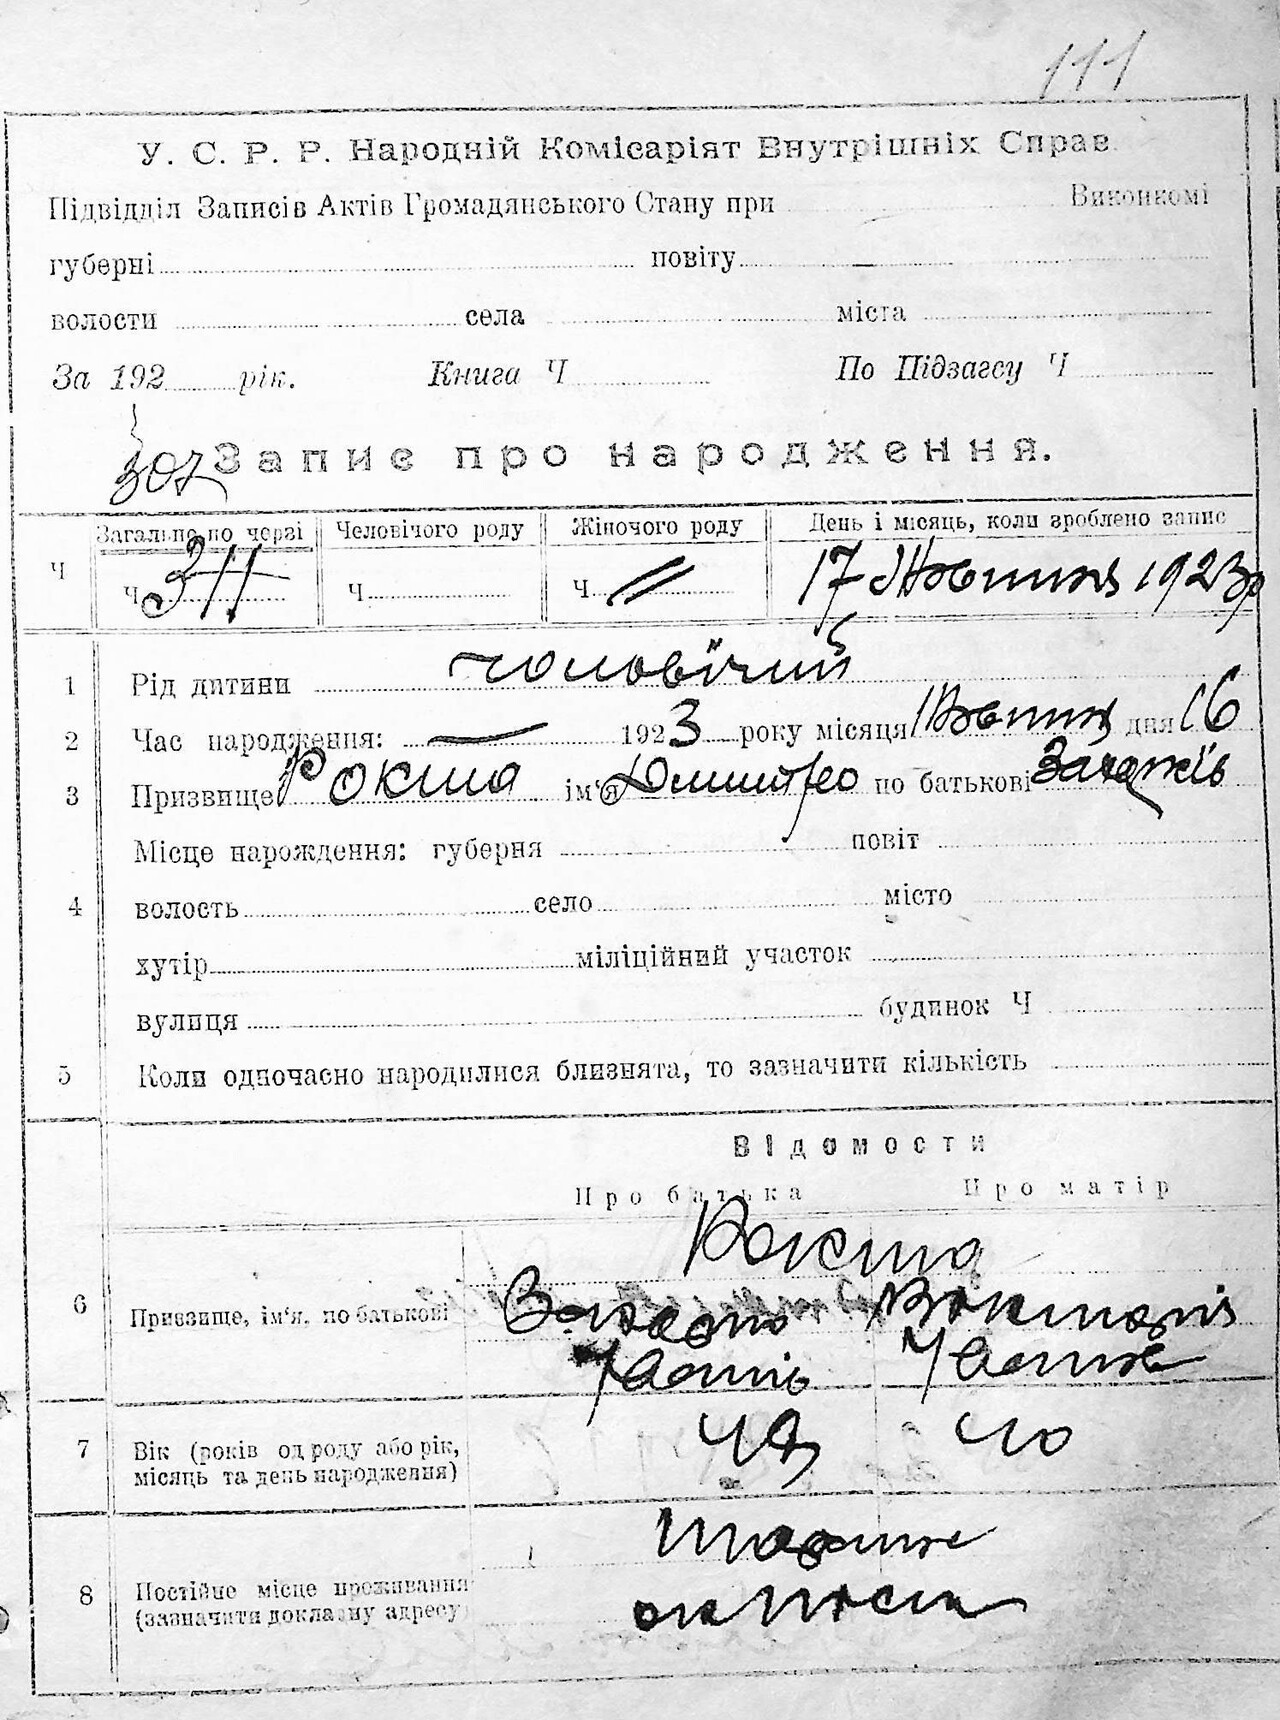 111
У. С. Р. Р. Народній Комісаріят Внутрішніх Справ
Підвідділ Записів Актів Громадянського Стану при Виконкомі
губерні повіту
волости села міста
За 192 рік. Книга Ч По Підзагсу Ч
307 Запис про народження.
Загально по черзі Человічого роду Жіночого роду День і місяць, коли зроблено запис
Ч Ч 311 Ч Ч 17 Жовтня 1923 р
1 Рід дитини чоловічий
2 Час народження: — 1923 року місяця Жовтня дня 16
3 Призвище Рокита ім'я Дмитро по батькові
Місце нарождення: губерня повіт
4 волость село місто
хутір міліційний участок
вулиця будинок Ч
5 Коли одночасно народилися близнята, то зазначити кількість
Відомости
Про батька Про матір
Рокита
6 Призвище, ім'я, по батькові
7 Вік (років од роду або рік, місяць та день народження) 40
8 Постійне місце проживання
(зазначити докладну адресу)